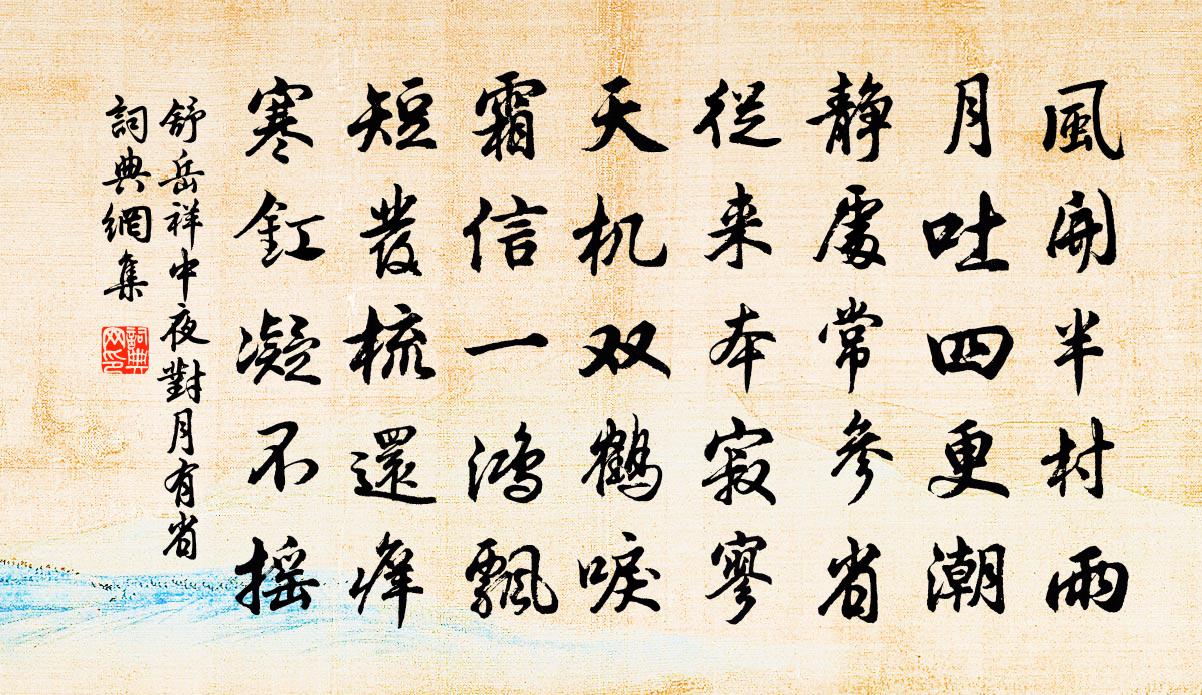 風開半村雨
月吐四更潮
静處常參省
從来本寂寥
天机双鶴唳
霜信一鴻飄
短發梳還癢
寒釭凝不摇
舒岳祥中夜對月有省
詞典網集
詞典网印